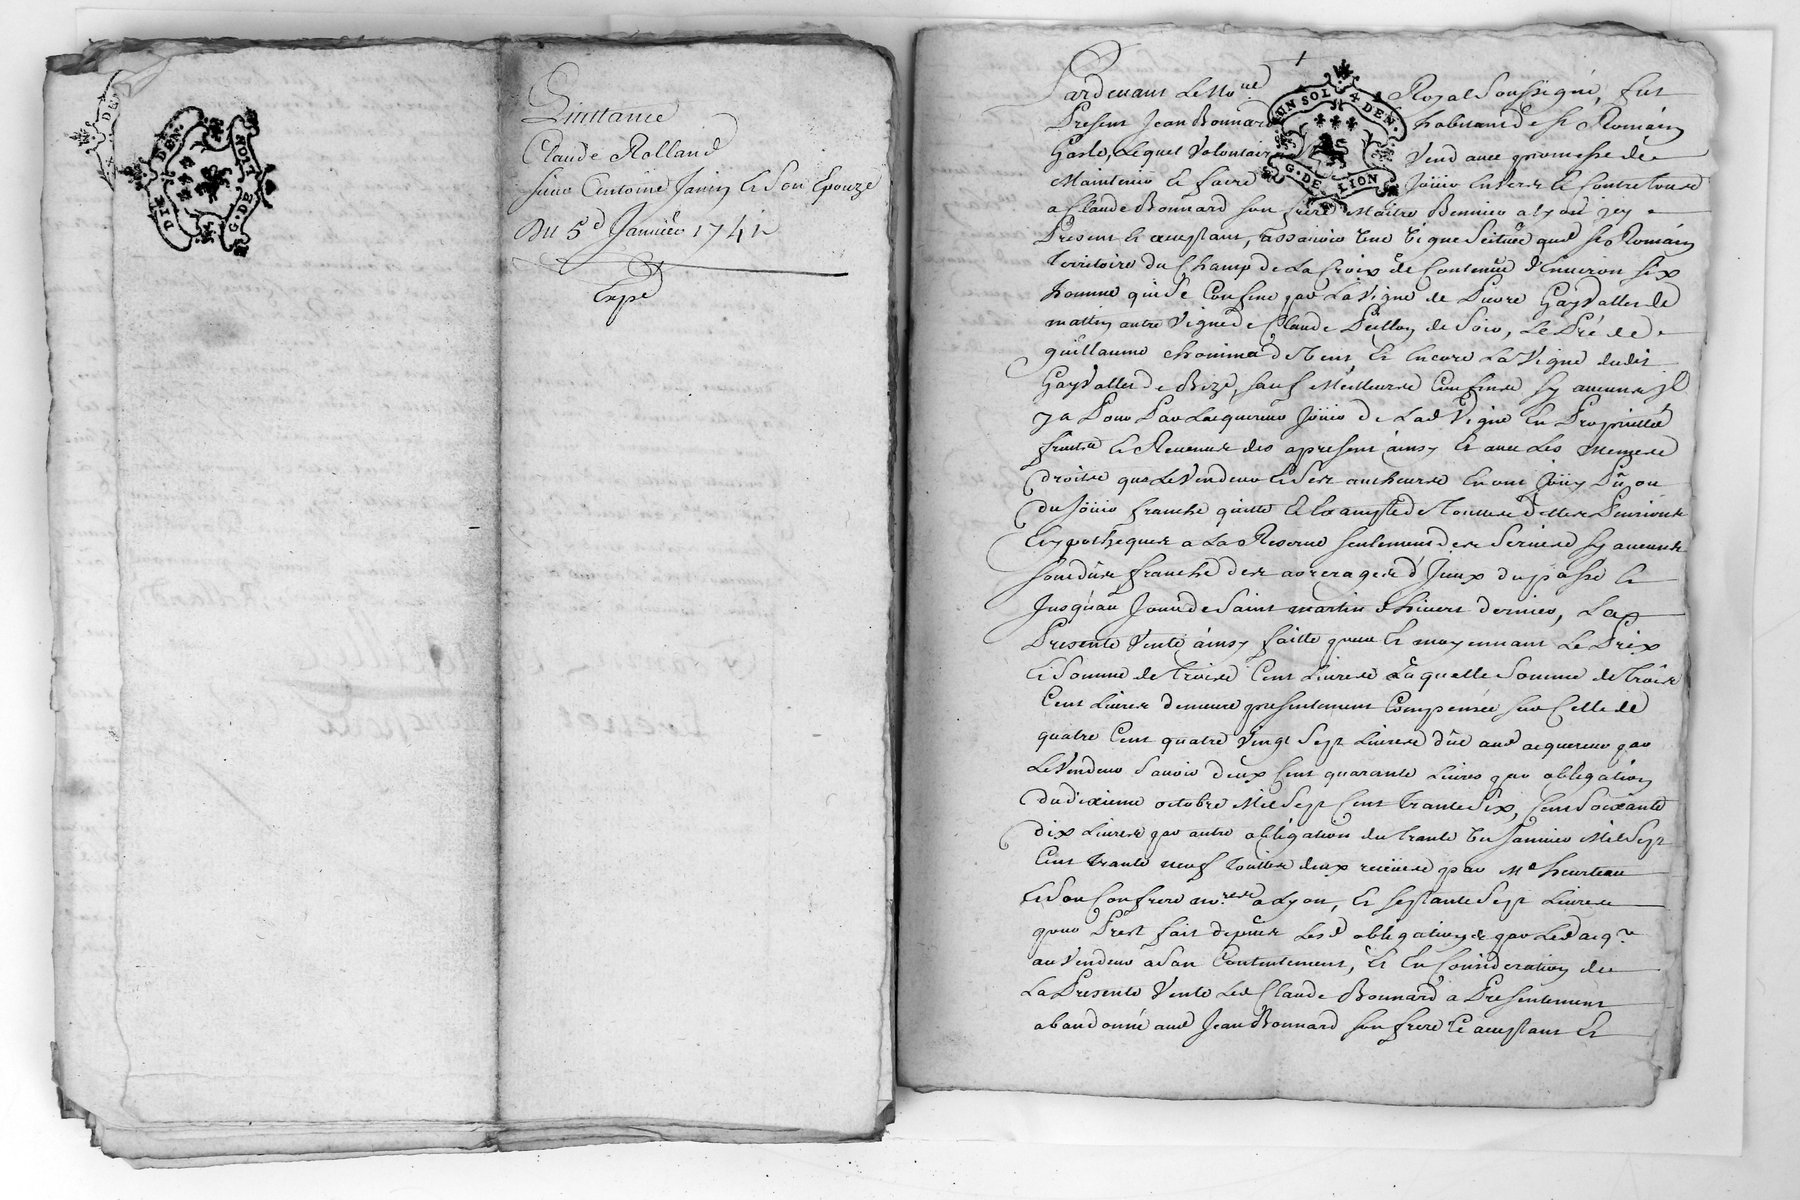 DE
DIX DEN.
G. DE LION
Quittance
Claude Rolland
sieur Antoine Janin et son Epouze
Du 5d Janvier 1741
Expé
Pardevant le No.re Royal soussigné, fut
UN SOL 4 DEN.
G. DE LION
Present Jean Bonnard habitant de St Romain
lequel volontair vend avec promesse de
Maintenir et faire Joüir envers et contre tous
a Claude Bonnard son frere Maitre a Lyon jcy
Present et aceptant, assavoir une vigne scituée aud St Romain
territoire du Champ de La Croix de contenue d'Environ six
homme qui se confine par La vigne de Pierre Gayvallet de
matin autre vigne de Claude Peillon de soir, Le Pré de
guillaume de vent et encore La vigne dudit
Gayvallet de Bize, sauf Meilleurs confins sy aucuns jl
y a Pour Par Lacquereur Joüir de Lad vigne En Proprietté
fruits et Revenus des apresent ainsy et avec les memes
droits que Le Vendeur et ses autheurs en ont Joüy Pû ou
du Joüir franche quitte et Exampte de touttes dettes Pensions
Ewypotheques a La Reserve seulement des servis sy aucuns
sont dûs franche des arrerages d'Jceux du passé et
Jusqu'au Jour de Saint martin d'hivert dernier, La
Presente vente ainsy faitte pour et moyennant Le Prix
et Somme de trois Cent Livres Laquelle Somme de trois
Cent Livres demeure presentement Compensée sur Celle de
quatre Cent quatre vingt Sept Livres düe aud acquereur par
Le Vendeur Savoir deux Cent quarante Livres par obligation
du dixieme octobre Mil Sept Cent trante Six, Cent Soixante
dix Livres par autre obligation du trante un Janvier Mil Sept
Cent trante neuf touttes deux reciües par Me heurteau
et Son Confrere no.res a Lyon, et septante Sept Livres
pour Prest fait depuis Lesd obligations par Led acqr
au Vendeur a Son Contentement, et En Consideration de
La Presente Vente Led Claude Bonnard a Presentement
abandonné aud Jean Bonnard son frere et aceptant et